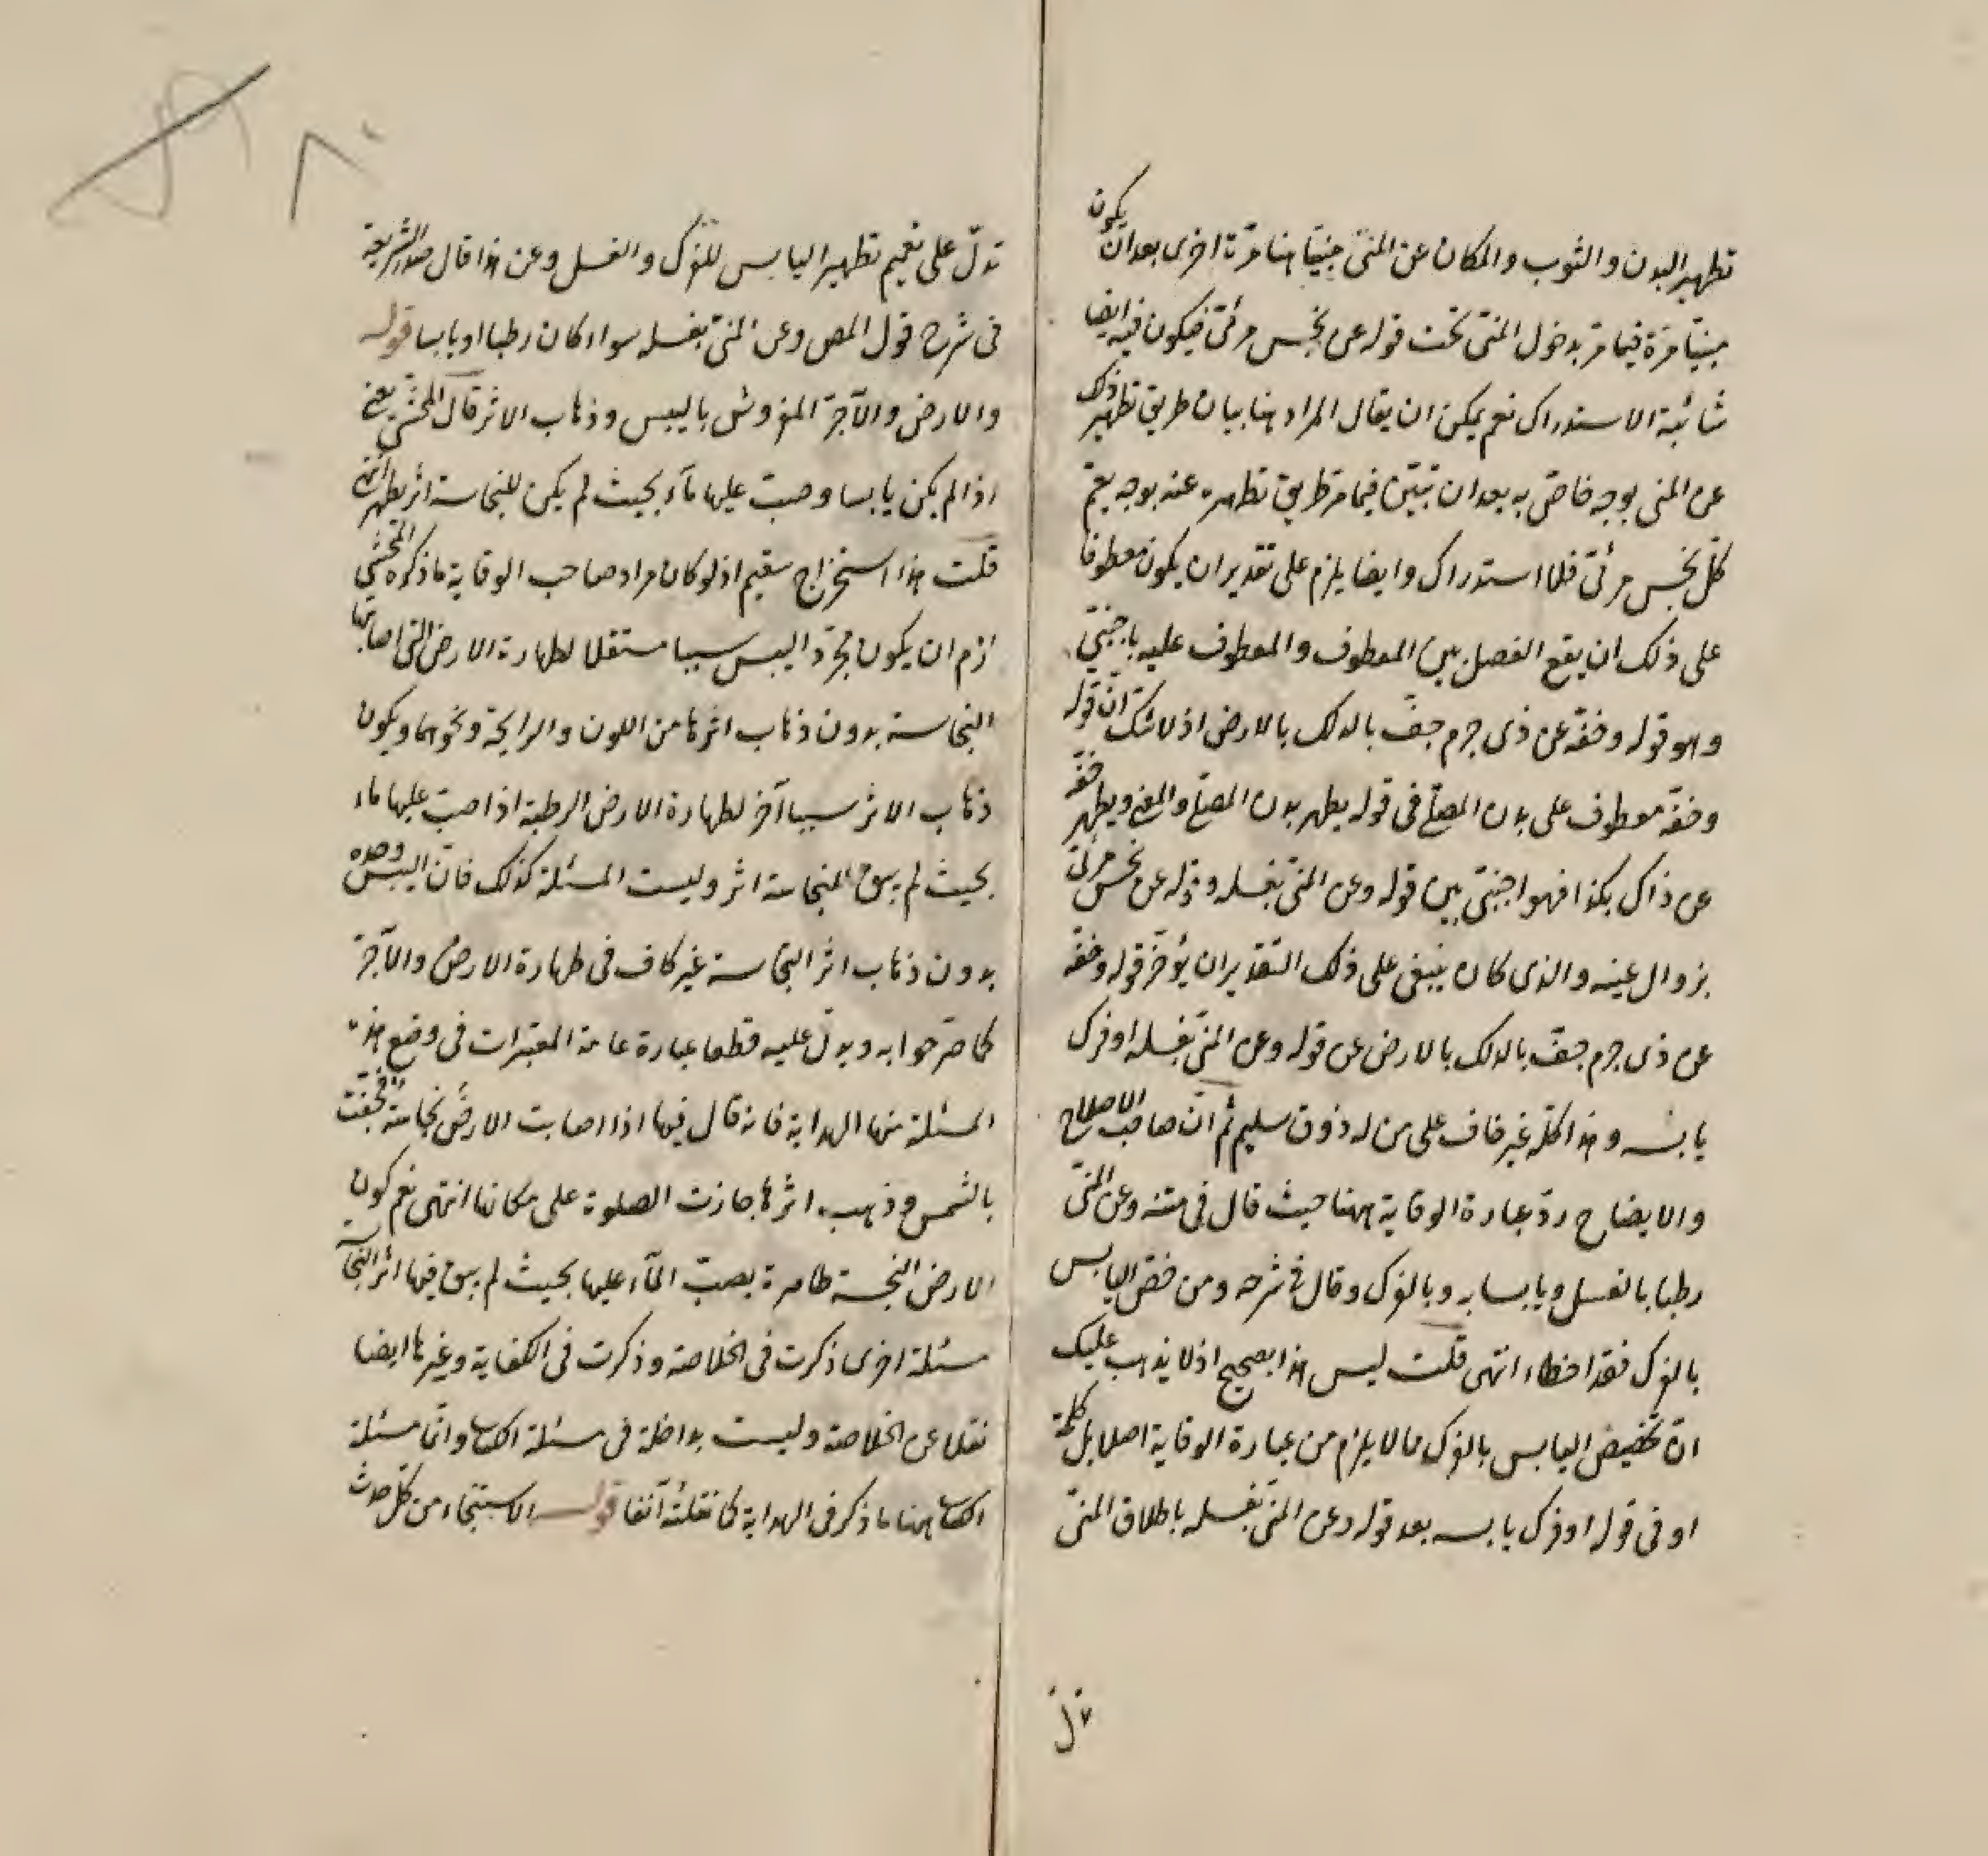 تطهير البدن والثوب والمكان عن المنى مبيّنا هنا مرّة اخرى بعد ان يكون
مبيّنا مرّة فيما مرّ بدخول المنى تحت قوله عن نجس مرئىّ فيكون فيه ايضا
شائبة الاستدراك نعم يمكن ان يقال المراد هنا بيان طريق تطهير ذلك
عن المنى بوجه خاصّ به بعد ان تبيّن فيما مرّ طريق تطهيره عنه بوجه يعمّ
كلّ نجس مرئىّ فلا استدراك وايضا يلزم على تقدير ان يكون معطوفا
على ذلك ان يقع الفصل بين المعطوف والمعطوف عليه باجنبىّ
وهو قوله وخفّه عن ذى جرم جفّ بالدلك بالارض اذ لا شك انّ قوله
وخفّه معطوف على بدن المصلّى فى قوله يطهر بدن المصلّى والمعنى ويطهر خفّه
عن ذاك بكذا فهو اجنبىّ بين قوله وعن المنىّ بغسله وقوله عن نجس مرئىّ
بزوال عينه والذى كان ينبغى على ذلك التقدير ان يؤخّر قوله وخفّه
عن ذى جرم جفّ بالدلك بالارض عن قوله وعن المنىّ بغسله او فرك
يابسه وهذا كلّه غير خاف على من له ذوق سليم ثم انّ صاحب الاصلاح
والايضاح ردّ عبارة الوقاية ههنا حيث قال فى متنه وعن المنىّ
رطبا بالغسل ويابسا به وبالفرك وقال فى شرحه ومن خصّ اليابس
بالفرك فقد اخطاء انتهى قلت ليس هذا بصحيح اذ لا يذهب عليك
انّ تخصيص اليابس بالفرك مما لا يلزم من عبارة الوقاية اصلا بل كلمة
او فى قوله او فرك يابسه بعد قوله وعن المنىّ بغسله باطلاق المنىّ
تدلّ على تعميم تطهير اليابس للفرك والغسل وعن هذا قال صدر الشريعة
فى شرح قول المص وعن المنىّ بغسله سواء كان رطبا او يابسا قوله
والارض والآجرّ المفروش باليبس وذهاب الاثر قال المحشّى يعنى
اذا لم يكن يابسا وصبّ عليها ماء بحيث لم يكن للنجاسة اثر يطهر انتهى
قلت هذا استخراج سقيم اذ لو كان مراد صاحب الوقاية ما ذكره المحشّى
لزم ان يكون مجرّد اليبس سببا مستقلا لطهارة الارض التى اصابتها
النجاسة بدون ذهاب اثرها من اللون والرايحة ونحوهما ويكون
ذهاب الاثر سببا آخر لطهارة الارض الرطبة اذا صبّ عليها ماء
بحيث لم يبق للنجاسة اثر وليست المسئلة كذلك فانّ اليبس وحده
بدون ذهاب اثر النجاسة غير كاف فى طهارة الارض والآجرّ
كما صرّحوا به ويدلّ عليه قطعا عبارة عامة المعتبرات فى وضع هذه
المسئلة منها الهداية فانه قال فيها اذا اصابت الارض نجاسة فجفّت
بالشمس وذهب اثرها جازت الصلوة على مكانها انتهى نعم كون
الارض النجسة طاهرة بصبّ الماء عليها بحيث لم يبق فيها اثر النجاسة
مسئلة اخرى ذكرت فى الخلاصة وذكرت فى الكفاية وغيرها ايضا
نقلا عن الخلاصة وليست بداخلة فى مسئلة الكتاب وانّما مسئلة
الكتاب ههنا ما ذكر فى الهداية كما نقلته آنفا قوله الاستنجاء من كلّ حدث